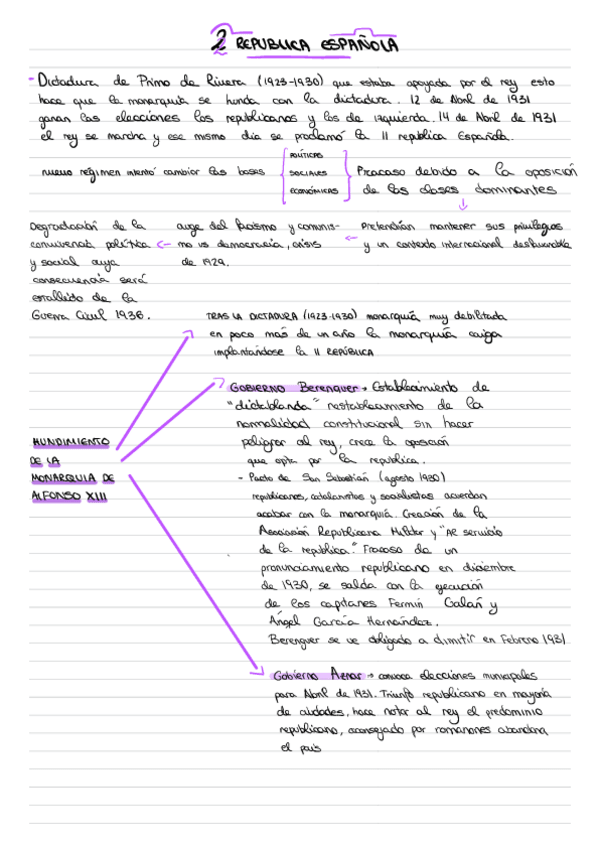 2 REPUBLICA ESPAÑOLA
- Dictadura de Primo de Rivera (1923-1930) que estaba apoyada por el rey esto
hace que la monarquia se hunda con la dictadura. 12 de Abril de 1931
ganan las elecciones los republicanos y los de izquierda. 14 de Abril de 1931
el rey se marcha y ese mismo dia se proclamó la II republica Española.
nuevo régimen intentó cambiar las bases
POLÍTICAS
SOCIALES
ECONÓMICAS
Fracaso debido a la oposición
de las clases dominantes
Pretendían mantener sus privilegios
y un contexto internacional desfavorable
auge del fascismo y comunis-
mo vs democracia, crisis
de 1929.
Degradación de la
convivencia política
y social cuya
consecuencia será
estallido de la
Guerra Civil 1936.
HUNDIMIENTO
DE LA
MONARQUIA DE
ALFONSO XIII
TRAS LA DICTADURA (1923-1930) monarquía muy debilitada
en poco más de un año la monarquía caiga
implantándose la II REPÚBLICA
GOBIERNO Berenguer → Establecimiento de
"dictablanda" restablecimiento de la
normalidad constitucional sin hacer
peligrar al rey, crece la oposición
que opta por la republica.
- Pacto de San Sebastián (agosto 1930)
republicanos, catalanistas y socialistas acuerdan
acabar con la monarquía. Creación de la
Asociación Republicana Militar y "Al servicio
de la republica". Fracaso de un
pronunciamiento republicano en diciembre
de 1930, se salda con la ejecución
de los capitanes Fermín Galán y
Ángel García Hernández.
Berenguer se ve obligado a dimitir en Febrero 1931
Gobierno Aznar → convoca elecciones municipales
para Abril de 1931. Triunfo republicano en mayoría
de ciudades, hace notar al rey el predominio
republicano, aconsejado por romanones abandona
el país